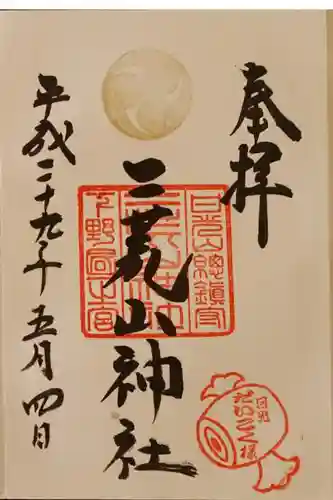 奉拝
二荒山神社
平成二十九年五月四日
日光山總鎮守
下野國一之宮
日光
だいこく様